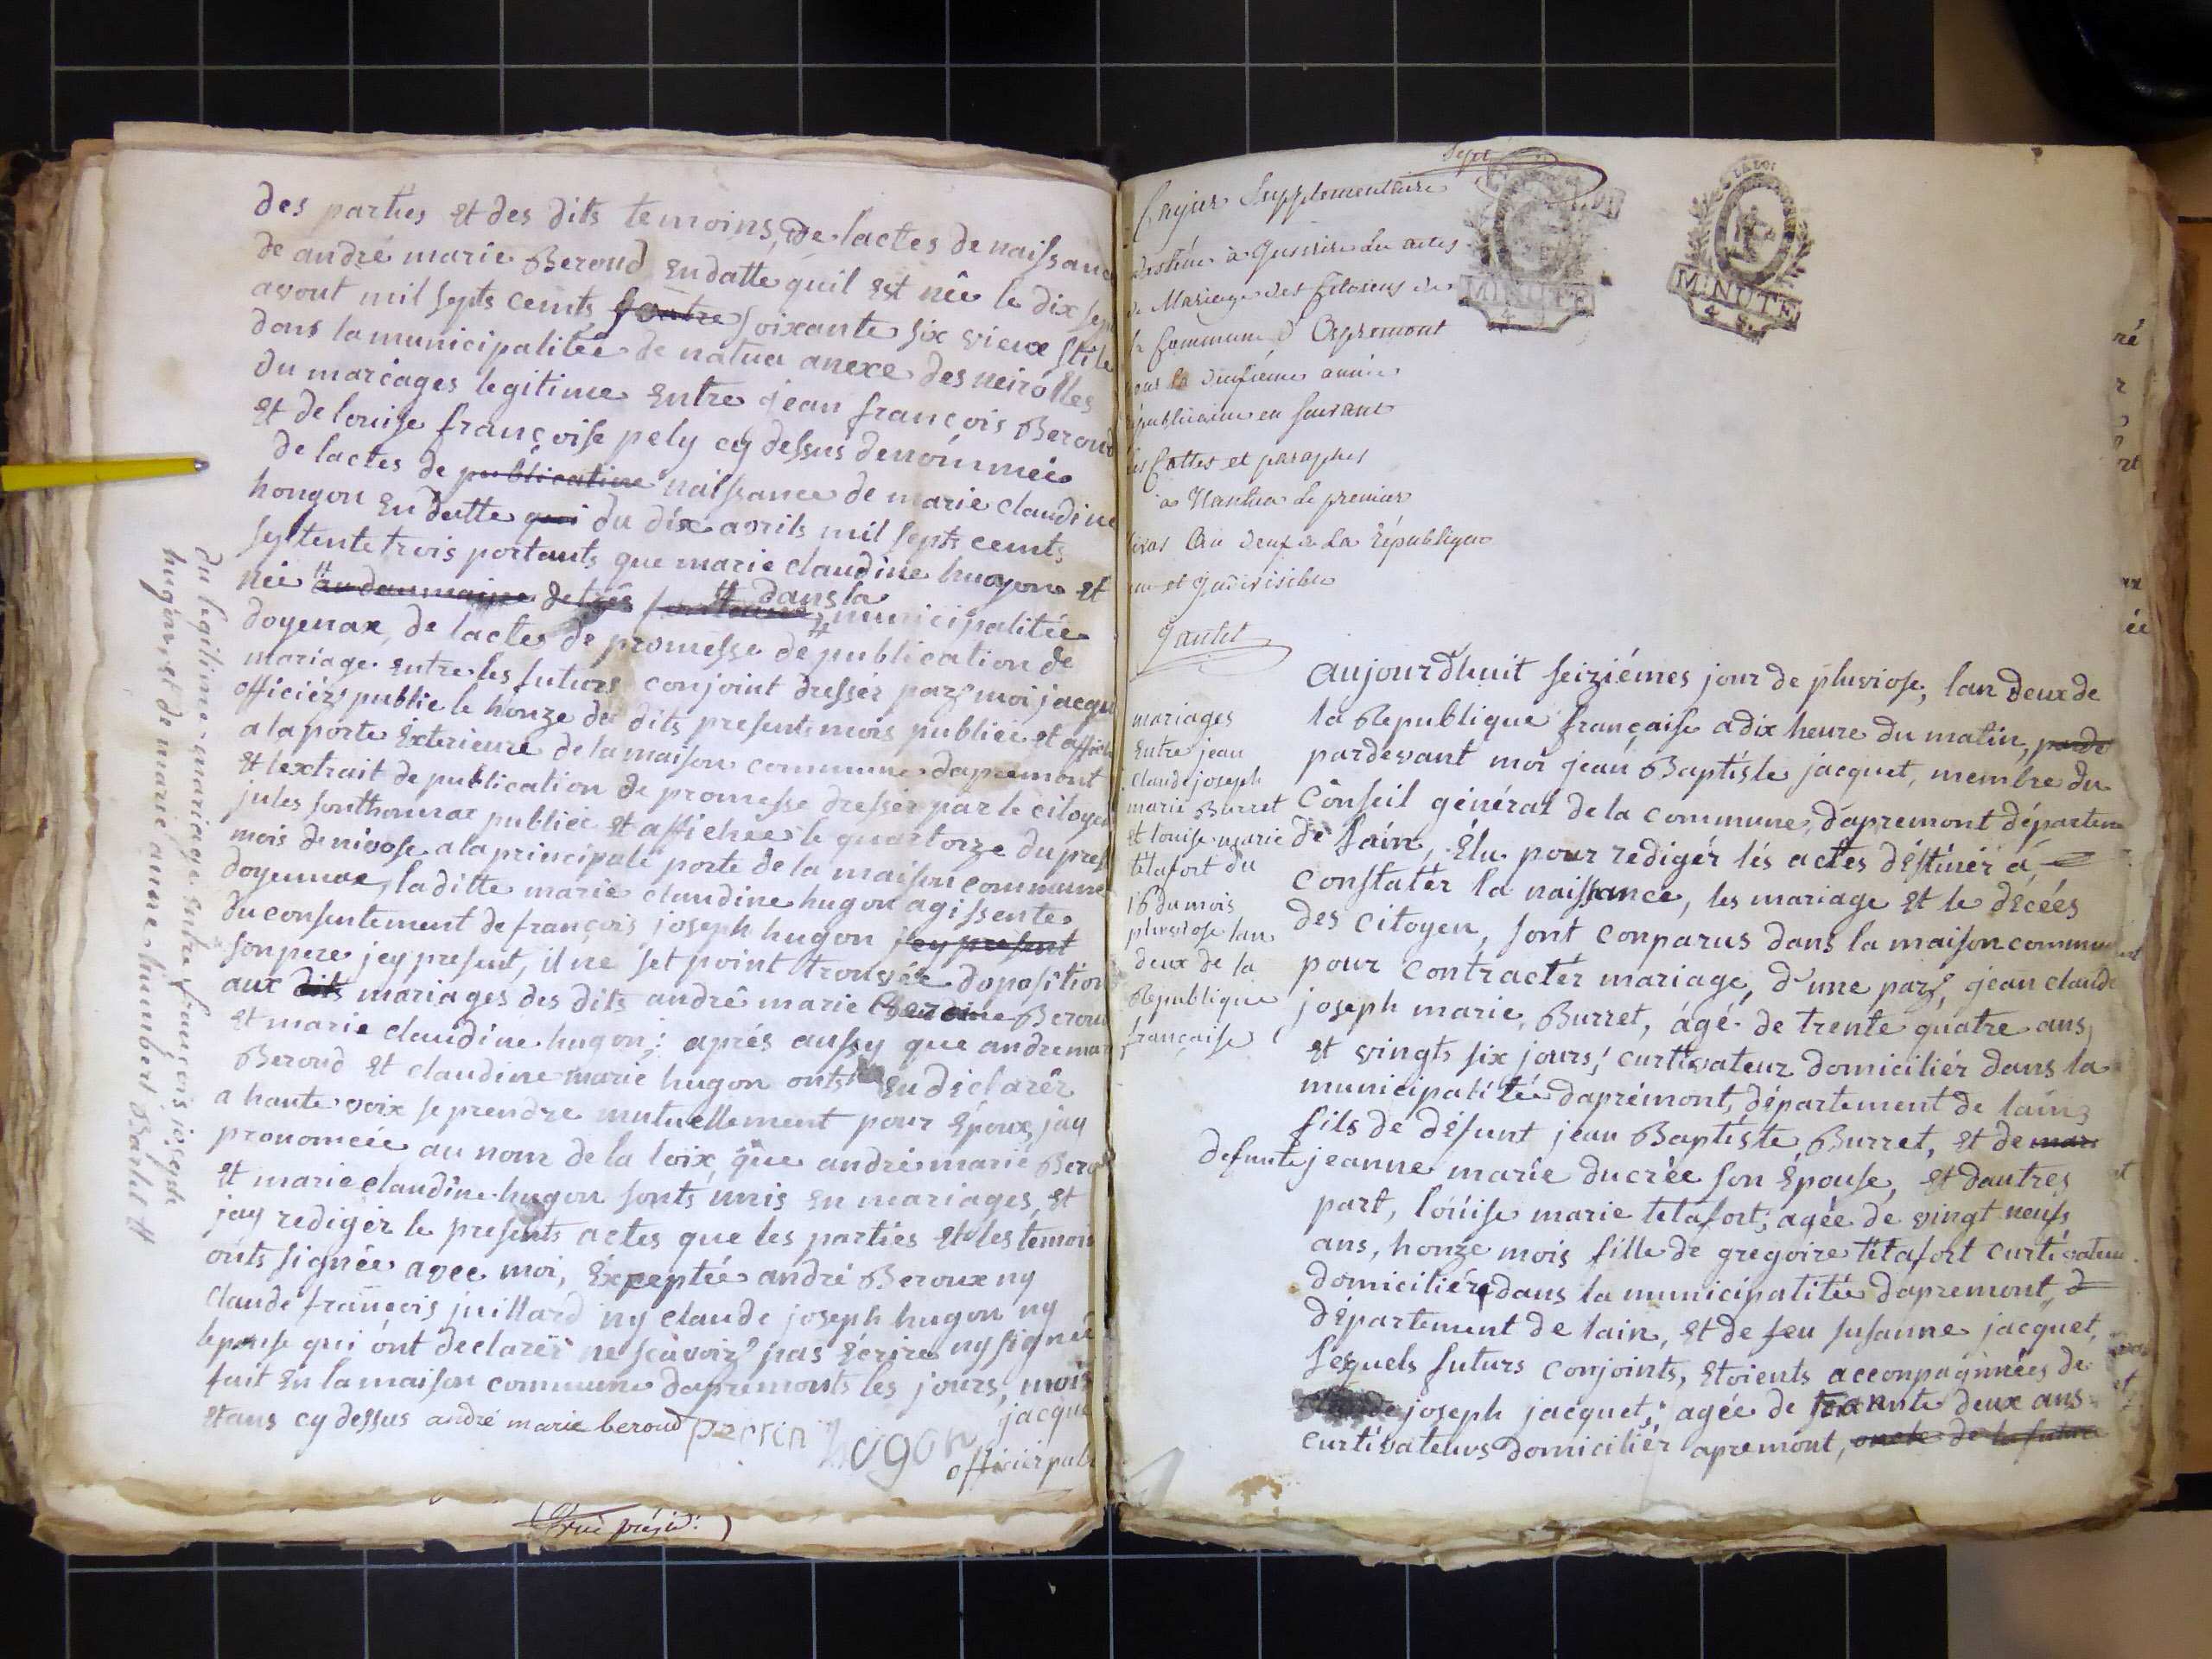 des parties et des dits temoins, de lactes de naissanc
de andré marie Beroud en datte quil est née le dix sep
avout mil septs ceints soixante six vieux stile
dans la municipalitée de natua anexe des neirolles
du marcages legitime entre jean françois Beroud
et de louise françoise pely cy dessus denommée
de lactes de publicatione naissance de marie claudine
hongon en datte qui du dix avrils mil septs ceints
septente trois portants que marie claudine hugon et
née au daumaine dans la municipalitée
doyenax, de lactes de promesse de publication de
mariage entre les futurs conjoint dressér par moi jacqu
officiér publie le honze du dits present mois publiée et affich
a la porte exterieure de la maison commune dapremont
et lextrait de publication de promesse dressér par le citoyen
jules sonthonnax publiée et affichee le quartorze du pres
mois de nivose a la principale porte de la maison commune
doyennax, laditte marie claudine hugon agissente
du consentement de françois joseph hugon jey present
son pere jey present, il ne set point trouvée doposition
aux dits mariages des dits andré marie Beroud
et marie claudine hugon; aprés aussy que andre mar
Beroud et claudine marie hugon onts en diclarér
a haute voix se prendre mutuellement pour époux, jay
pronomcée au nom de la loix, que andré marie Bero
et marie claudine hugon sonts unis en mariages, et
jay redigér le presents actes que les parties et les temoin
onts signée avec moi, éxpeptée andré Beroux ny
claude françois juillard ny claude joseph hugon ny
lepouse qui ont declarér ne scavoir pas écrire ny signée
fait en la maison commune dapremonts les jours, mois
et ans cy dessus andré marie beroud perrin hugon jacque
officier publ
du legitime mariage entre françois joseph
hugon, et de marie anne humbert Barlet #
sept
Cayer Supplementaire
destiné à Inscrire les actes
de Mariage des Citoiens de
la Commune d'Apremont
pour la deuxième année
républicaine en suivant
les Cottes et paraphes
à Nantua le premier
nivos l'an deux de la République
une et Indivisible
Jantet
MINUTE
4. S.
MINUTE
4. S.
mariages
entre jean
claude joseph
marie Burret
et louise marie
tétafort du
16 du mois
pluviose lan
deux de la
République
française
aujourdhuit seiziémes jour de pluviose, lan deux de
la République française a dix heure du matin, parde
pardevant moi jean Baptiste jacquet, membre du
Conseil général de la commune, dapremont départem
de lain, élu pour redigér lés actes déstinér á
constatér la naissance, les mariage et le décées
des citoyen, sont conparus dans la maison commun
pour contractér mariage, d'une part, jean claude
joseph marie, Burret, ágé de trente quatre ans,
et vingts six jours, curtivateur domiciliér dans la
municipalitée daprémont, département de lain,
fils de défunt jean Baptiste, Burret, et de mari
defunte jeanne marie ducrée son épouse, et dautres
part, lóuise marie tétafort, agée de vingt neufs
ans, honze mois fille de gregoire tétafort curtivateur
domiciliér dans la municipatitée dapremont, d
département de lain, et de feu susanne jacquet,
lesquels futurs conjoints, étoients acconpagnnées de
joseph jacquet, agée de trante deux ans
curtivateurs domiciliér apremont, oncle de la future